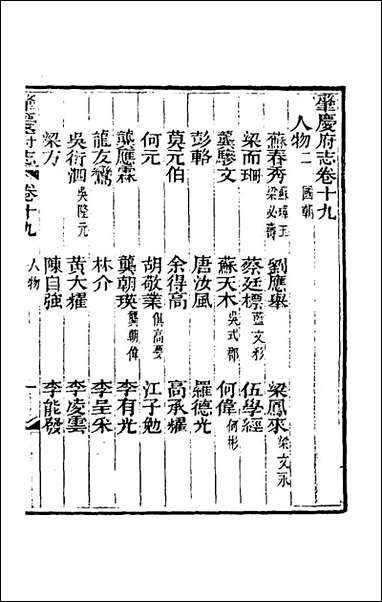 肇慶府志卷十九
人物二國朝
蘇春秀蘇璋玉梁必壽 劉應舉 梁鳳來梁文永
梁而珊 蔡廷標藍文彩 伍學經
龔驂文 蘇天木吳式郡 何偉何彬
彭輅 唐汝風 羅德光
莫元伯 余得高 高承㰒
何元 胡敬業俱高要 江子勉
龔應霖 龔朝瑛龔朝偉 李有光
龍友鸞 林介 李呈采
吳衍泗吳陞元 黃大𣝔 李凌雲
梁方 陳自強 李能發
肇慶府志 卷十九 人物 一